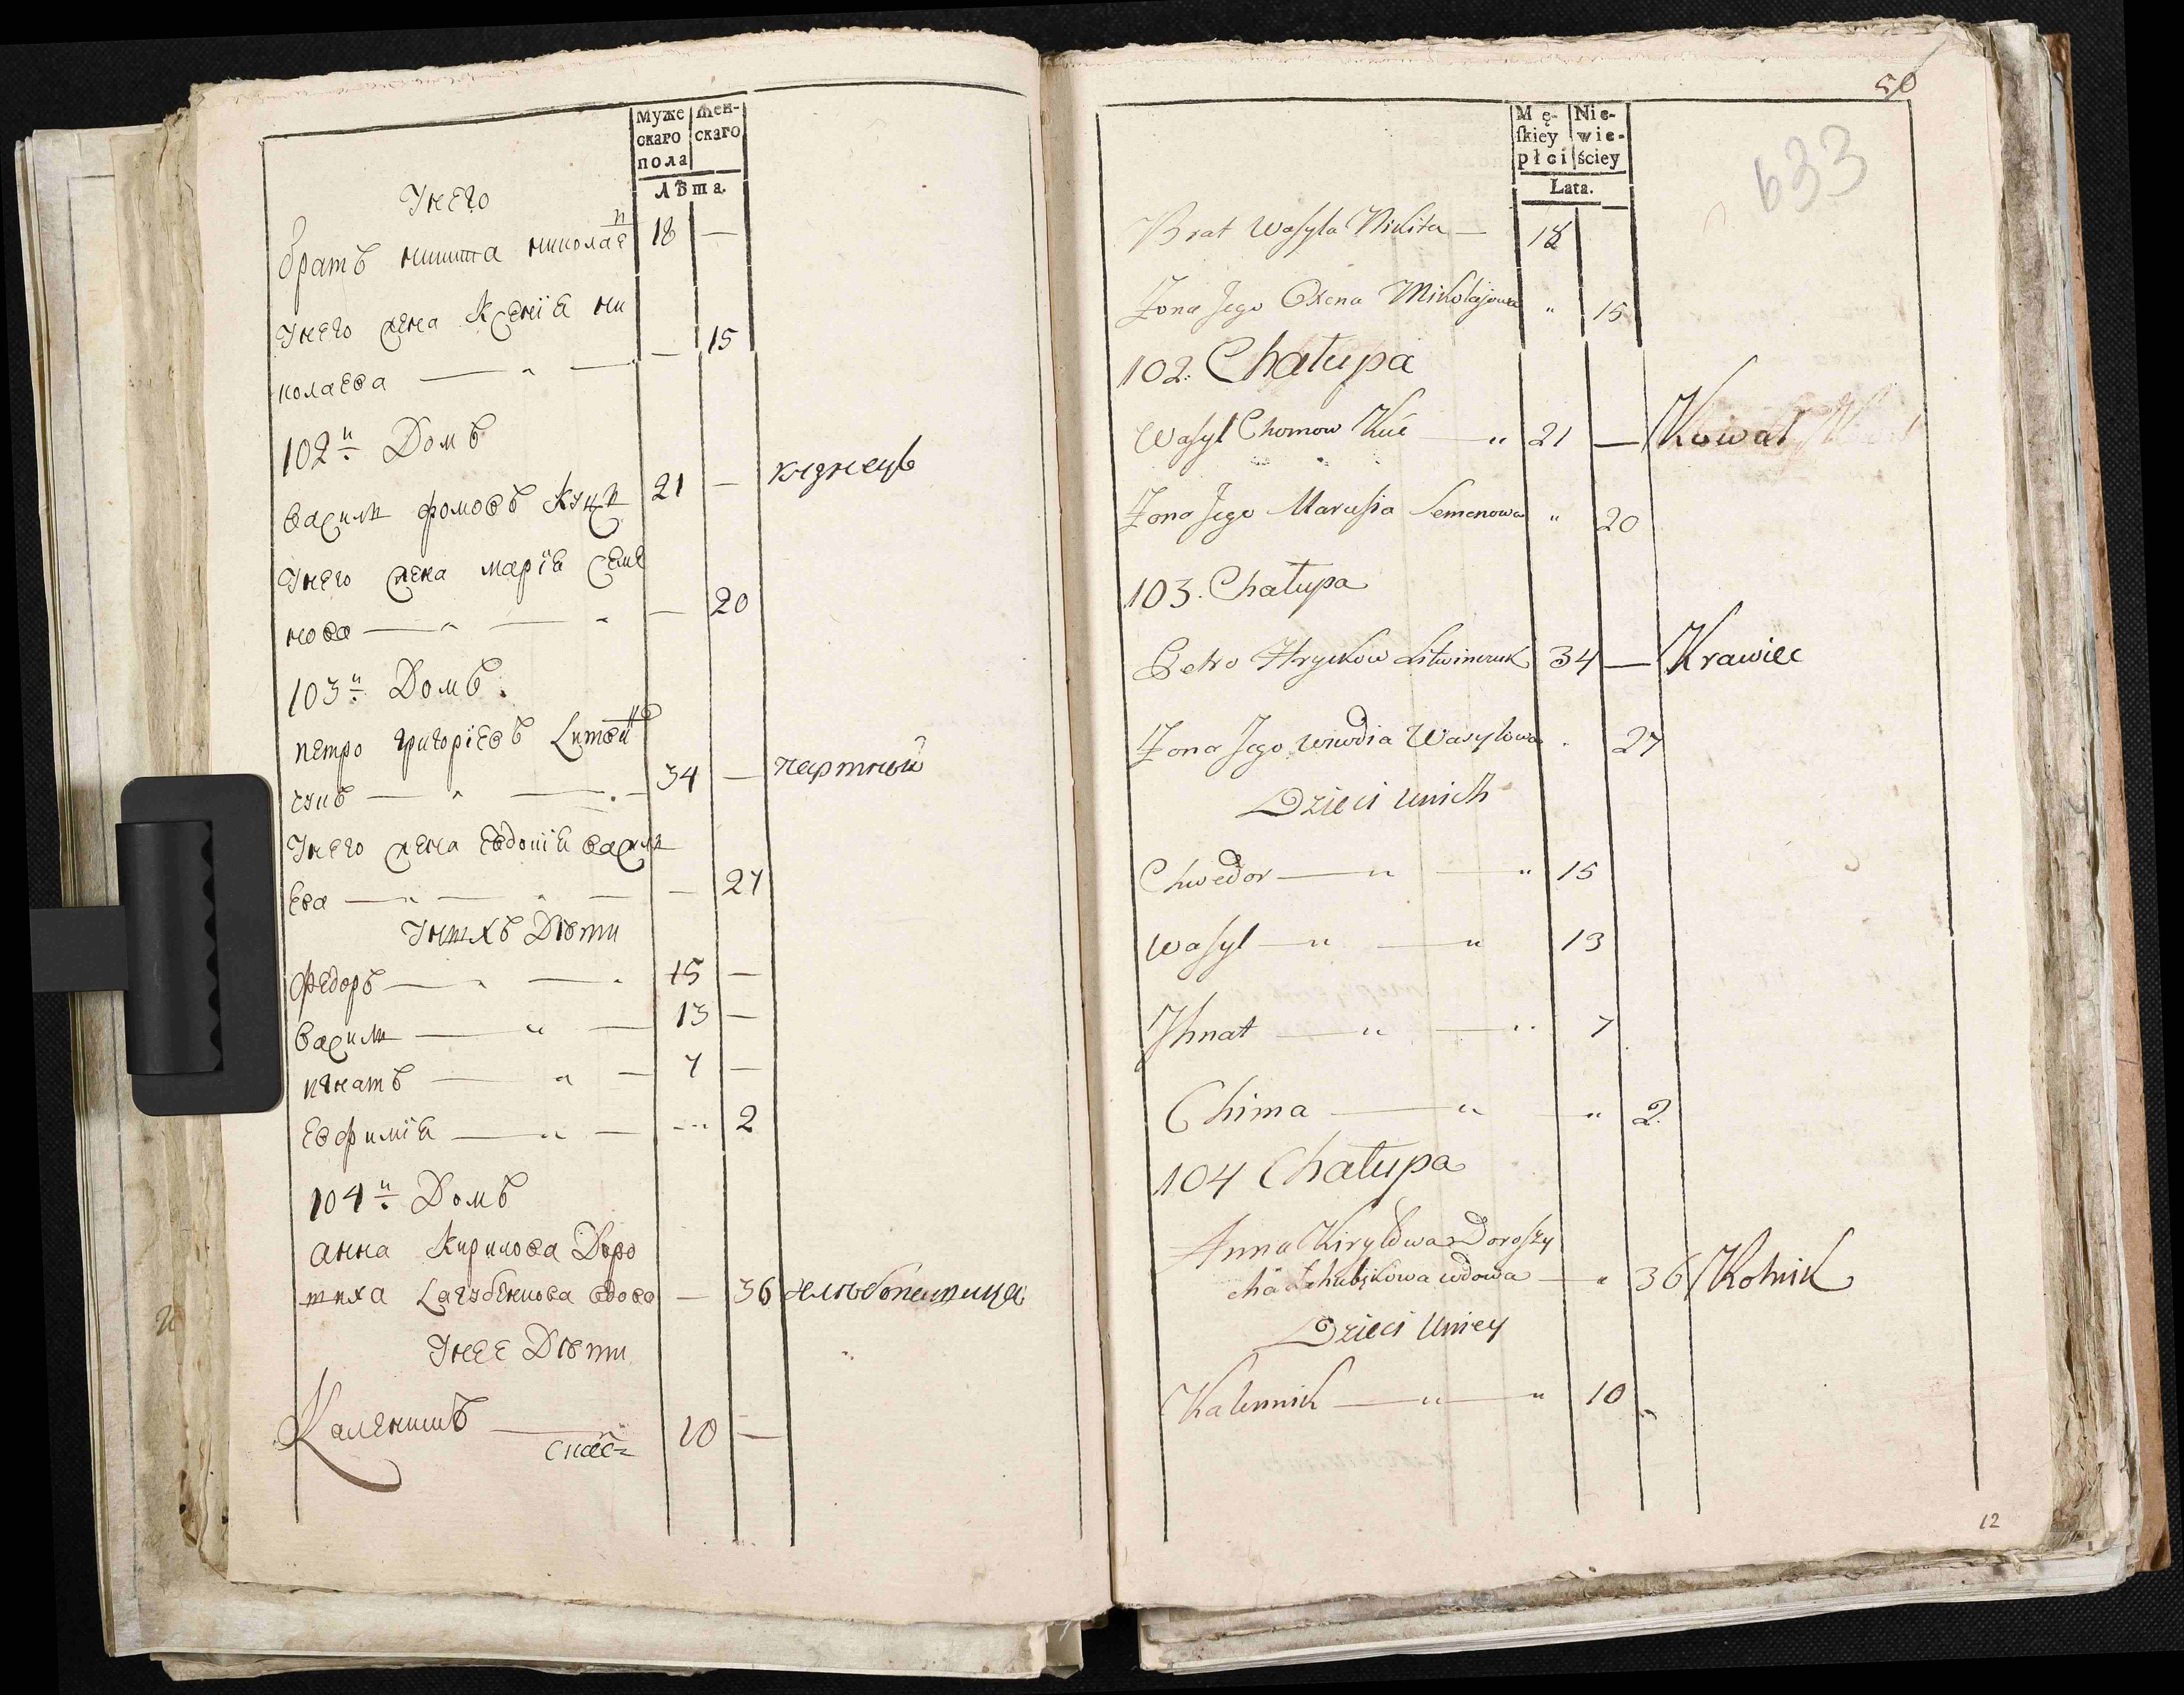 Муже скаго пола
Жен- скаго
Лѣта.
Унего
братъ никита николае 18 —
Унего жена Ксенїя ни
колаева — — — 15
102й Домъ
василь фомовъ Куць 21 — кузнецъ
Унего жена марїя семе
нова — — — 20
103й Домъ
петро григорїевъ Литвин
чукъ — — 34 — партной
Унего жена Евдокїя василь
ева — — — 27
Унихъ Дѣти
Федоръ — — 15 —
василь — — 13 —
игнатъ — — 7 —
Евфимїя — — 2
104й Домъ
анна Кирилова Доро
шиха вдова — 36
Унее Дѣти
Каленикъ — 10 —
50
633
Mę- skiey płci
Nie- wie- ściey
Lata.
Brat Wasyla Nikita — 18
Żona Jego Oxena Mikołajowa " 15
102. Chałupa
Wasyl Chomow Kuć — " 21 — Kowal
Żona Jego Marusia Semenowa " 20
103. Chałupa
Petro Hryckow Litwinczuk 34 — Krawiec
Żona Jego Wiwdia Wasylowa . 27
Dzieci unich
Chwedor — " — " 15
Wasyl — " — " 13
Ihnat — " — " 7
Chima — " — " 2
104 Chałupa
Anna Kiryłowa Doroszy
cha wdowa — " 36 Rolnik
Dzieci uniey
Kalennik — " — " 10 "
12